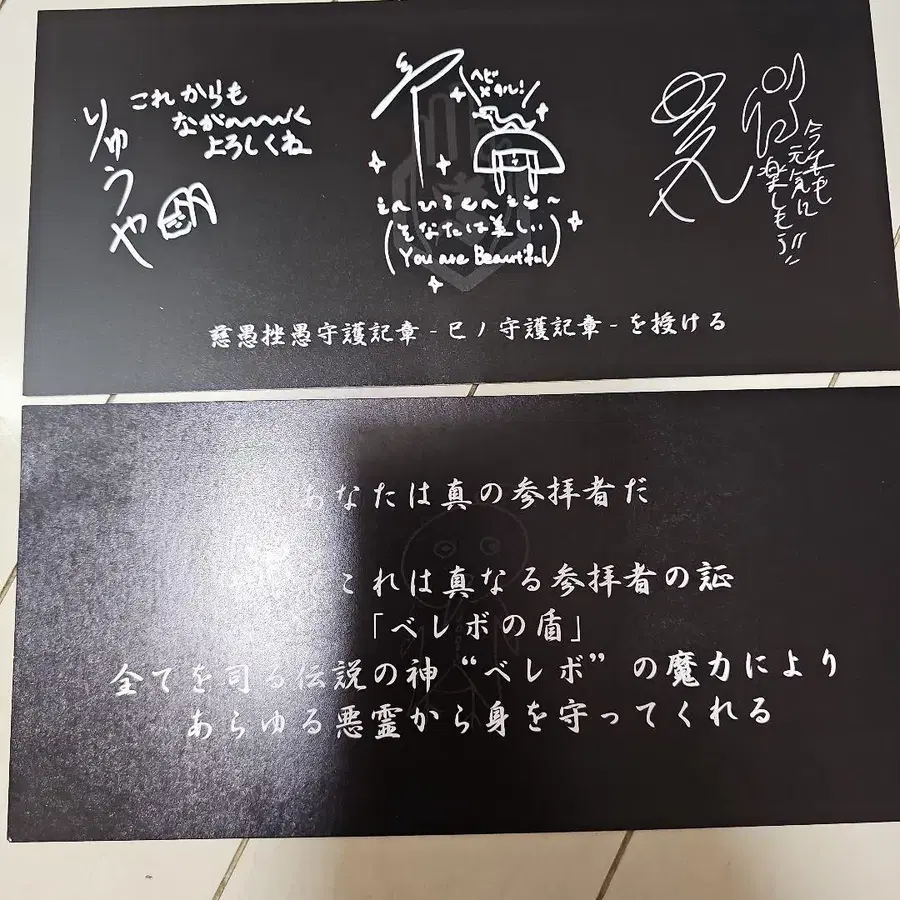 りゅうや
これからも
ながーーーーく
よろしくね
ヘビ
メタル!
そなたは美しい
(You are Beautiful)
今年も
元気に
楽しもう!!
慈愚挫愚守護記章-巳ノ守護記章-を授ける
あなたは真の参拝者だ
これは真なる参拝者の証
「ベレボの盾」
全てを司る伝説の神“ベレボ”の魔力により
あらゆる悪霊から身を守ってくれる